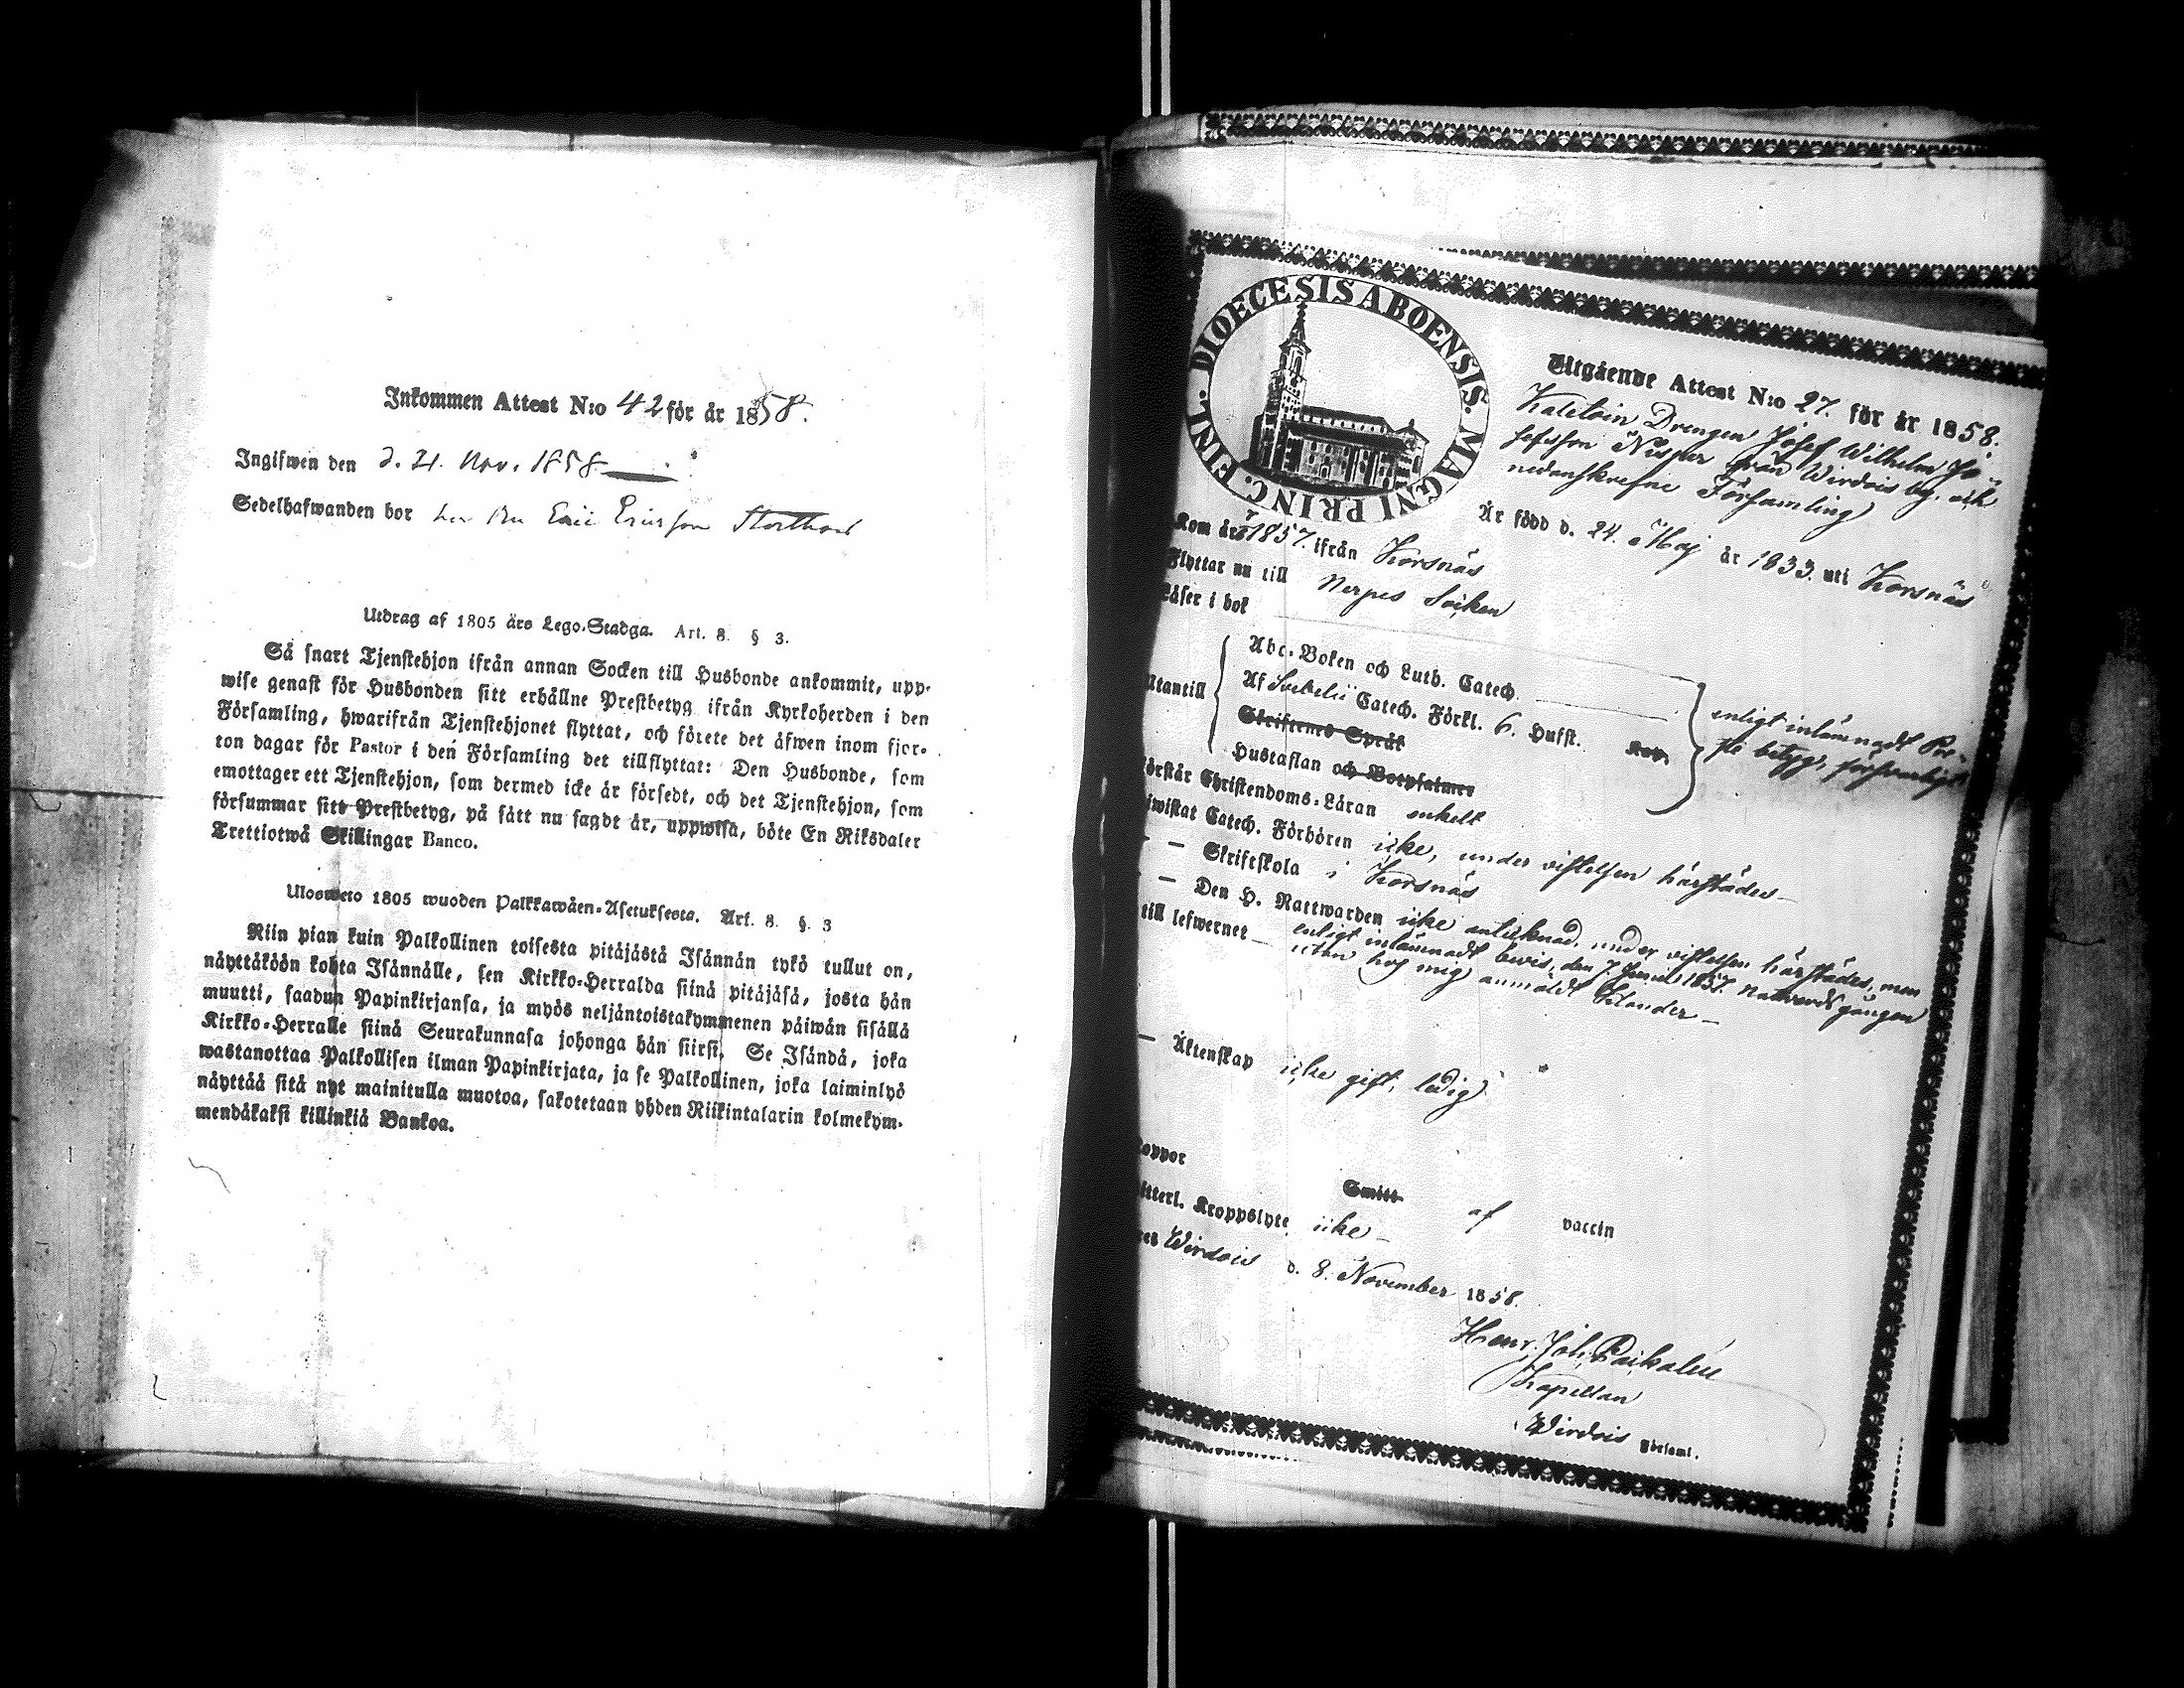 Inkommen Attest N:o 42 för år 1858.
Ingifwen den d. 21. Nov. 1858
Sedelhafwanden bor hos Bn Eric Ersson
Utdrag af 1805 års Lego-Stadga. Art. 8. § 3.
Så snart Tjenstehjon ifrån annan Socken till Husbonde ankommit, upp-
wise genast för Husbonden sitt erhållne Prestbetyg ifrån Kyrkoherden i den
Församling, hwarifrån Tjenstehjonet flyttat, och förete det äfwen inom fjor-
ton dagar för Pastor i den Församling det tillflyttat: Den Husbonde, som
emottager ett Tjenstehjon, som dermed icke är försedt, och det Tjenstehjon, som
försummar sitt Prestbetyg, på sätt nu sagdt är, uppwisa, böte En Riksdaler
Trettiotwå Skillingar Banco.
Ulosweto 1805 wuoden Palkkawäen-Asetuksesta. Art. 8. §. 3
Niin pian kuin Palkollinen toisesta pitäjästä Isännän tykö tullut on,
näyttäköön kohta Isännälle, sen Kirkko-Herralda siinä pitäjäsä, josta hän
muutti, saadun Papinkirjansa, ja myös neljäntoistakymmenen päiwän sisällä
Kirkko-Herralle siinä Seurakunnasa johonga hän siirsi. Se Isändä, joka
wastanottaa Palkollisen ilman Papinkirjata, ja se Palkollinen, joka laiminlyö
näyttää sitä nyt mainitulla muotoa, sakotetaan yhden Riikintalarin kolmekym-
mendäkaksi killinkiä Bankoa.
DIOECESIS ABOENSIS. MAGNI PRINC. FINL.
Utgående Attest N:o 27. för år 1858.
Drengen Josef Wilhelm Jo-
sefsson Nisper från Wirdois by, och
nedanskrefne Församling
Är född d. 24. Maj år 1833. uti Korsnäs
Kom år 1857. ifrån Korsnäs
Flyttar nu till Nerpes Socken
Läser i bok
Utantill
Abc-Boken och Luth. Catech.
Af Svebelii Catech. Förkl. 6. Hufst. Kap.
Skriftenes Språk
Hustaflan och Botpsalmer
enligt inlämnadt Pre-
ste betyg, försvarligt
örstår Christendoms-Läran enkelt
iwistat Catech. Förhören icke, under vistelsen härstädes
— Skriftskola i Korsnäs
— Den H. Nattwarden icke antecknad, under vistelsen härstädes, men
till lefwernet enligt inlämnadt bevis, den 7 Junii 1857. nattvardsgången
utan hos mig anmäldt
— Äktenskap icke gift, ledig
oppor Smitt af vaccin
itterl. Kroppslyte icke
Wirdois d. 8. November 1858.
Henr. Joh.
Kapellan
Wirdois Församl.